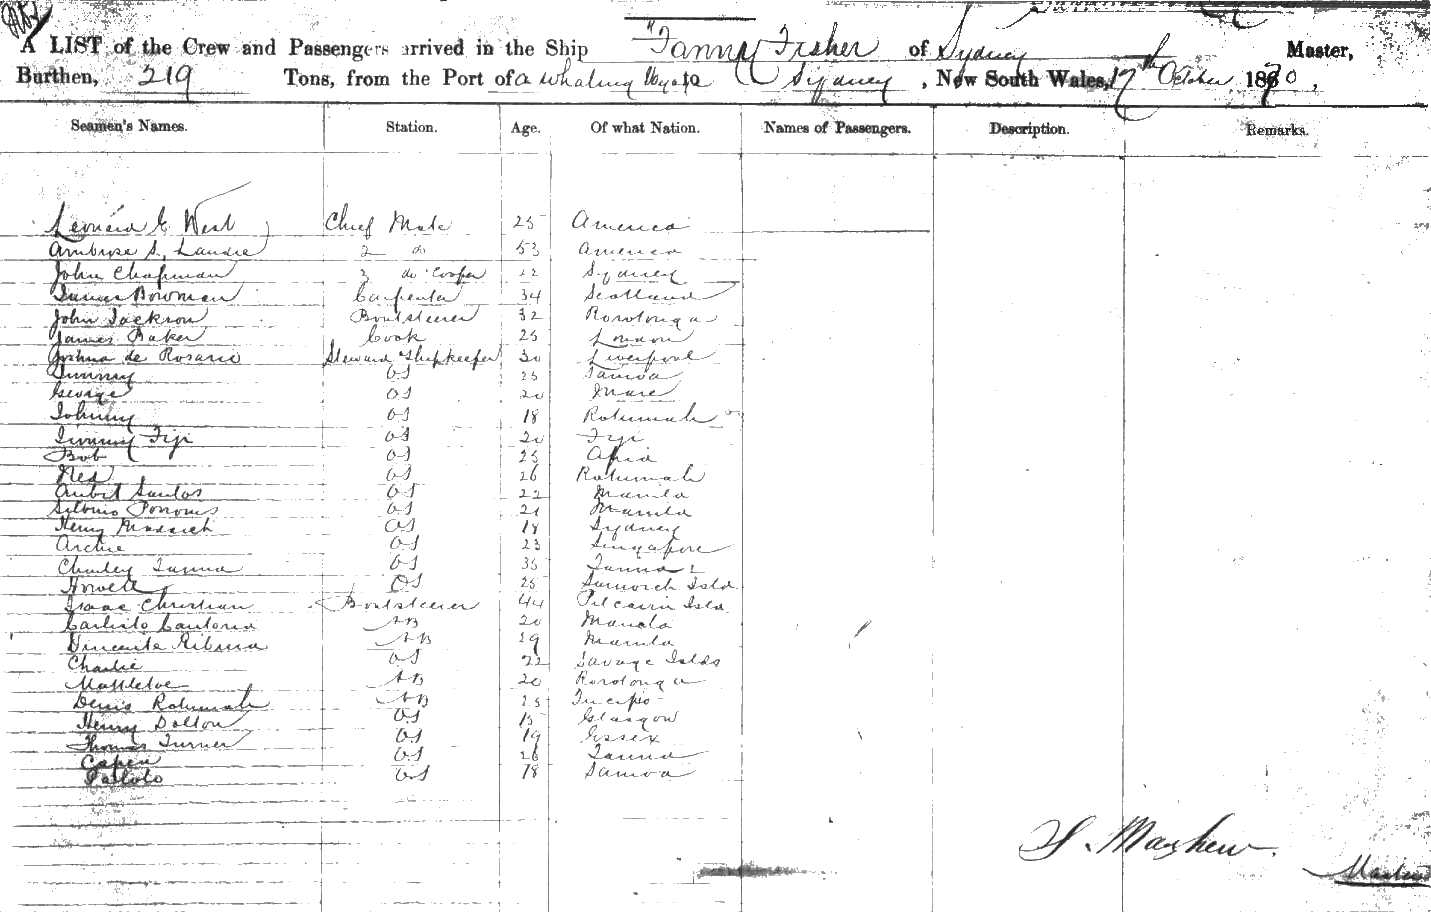 A LIST of the Crew and Passengers arrived in the Ship "Fanny Fisher of Sydney Master,
Burthen, 219 Tons, from the Port of a whaling Voyage Sydney, New South Wales, 17th October 1870,
Seamen's Names. Station. Age. Of what Nation. Names of Passengers. Description. Remarks.
Leonard E. West Chief Mate 25 America
Ambrose S. 2 do 53 America
John Chapman 3 do Cooper 22 Sydney
James Bowman Carpenter 34 Scotland
John Jackson Boatsteerer 32 Rorotonga
James Baker Cook 25 London
Joshua de Rosario Steward & Shipkeeper 30 Liverpool
Jimmy OS 25 Samoa
George OS 20 Mare
Johnny OS 18 Rotumah
Jimmy Fiji OS 20 Fiji
Bob OS 25 Apia
Ned OS 26 Rotumah
Santos OS 22 Manila
OS 21 Manila
Henry OS 18 Sydney
Archie OS 23 Singapore
Charley Tanna OS 35 Tanna
Howell OS 25 Isld
Isaac Christian Boatsteerer 44 Pitcairn Isld
AB 20 Manila
AB 19 Manila
Charlie OS 22 Savage Islds
AB 20 Rorotonga
Denis Rotumah AB 25
Henry Dolton OS 15 Glasgow
Thomas Turner OS 19 Essex
Capen OS 26 Tanna
OS 18 Samoa
S. Mayhew.
Master